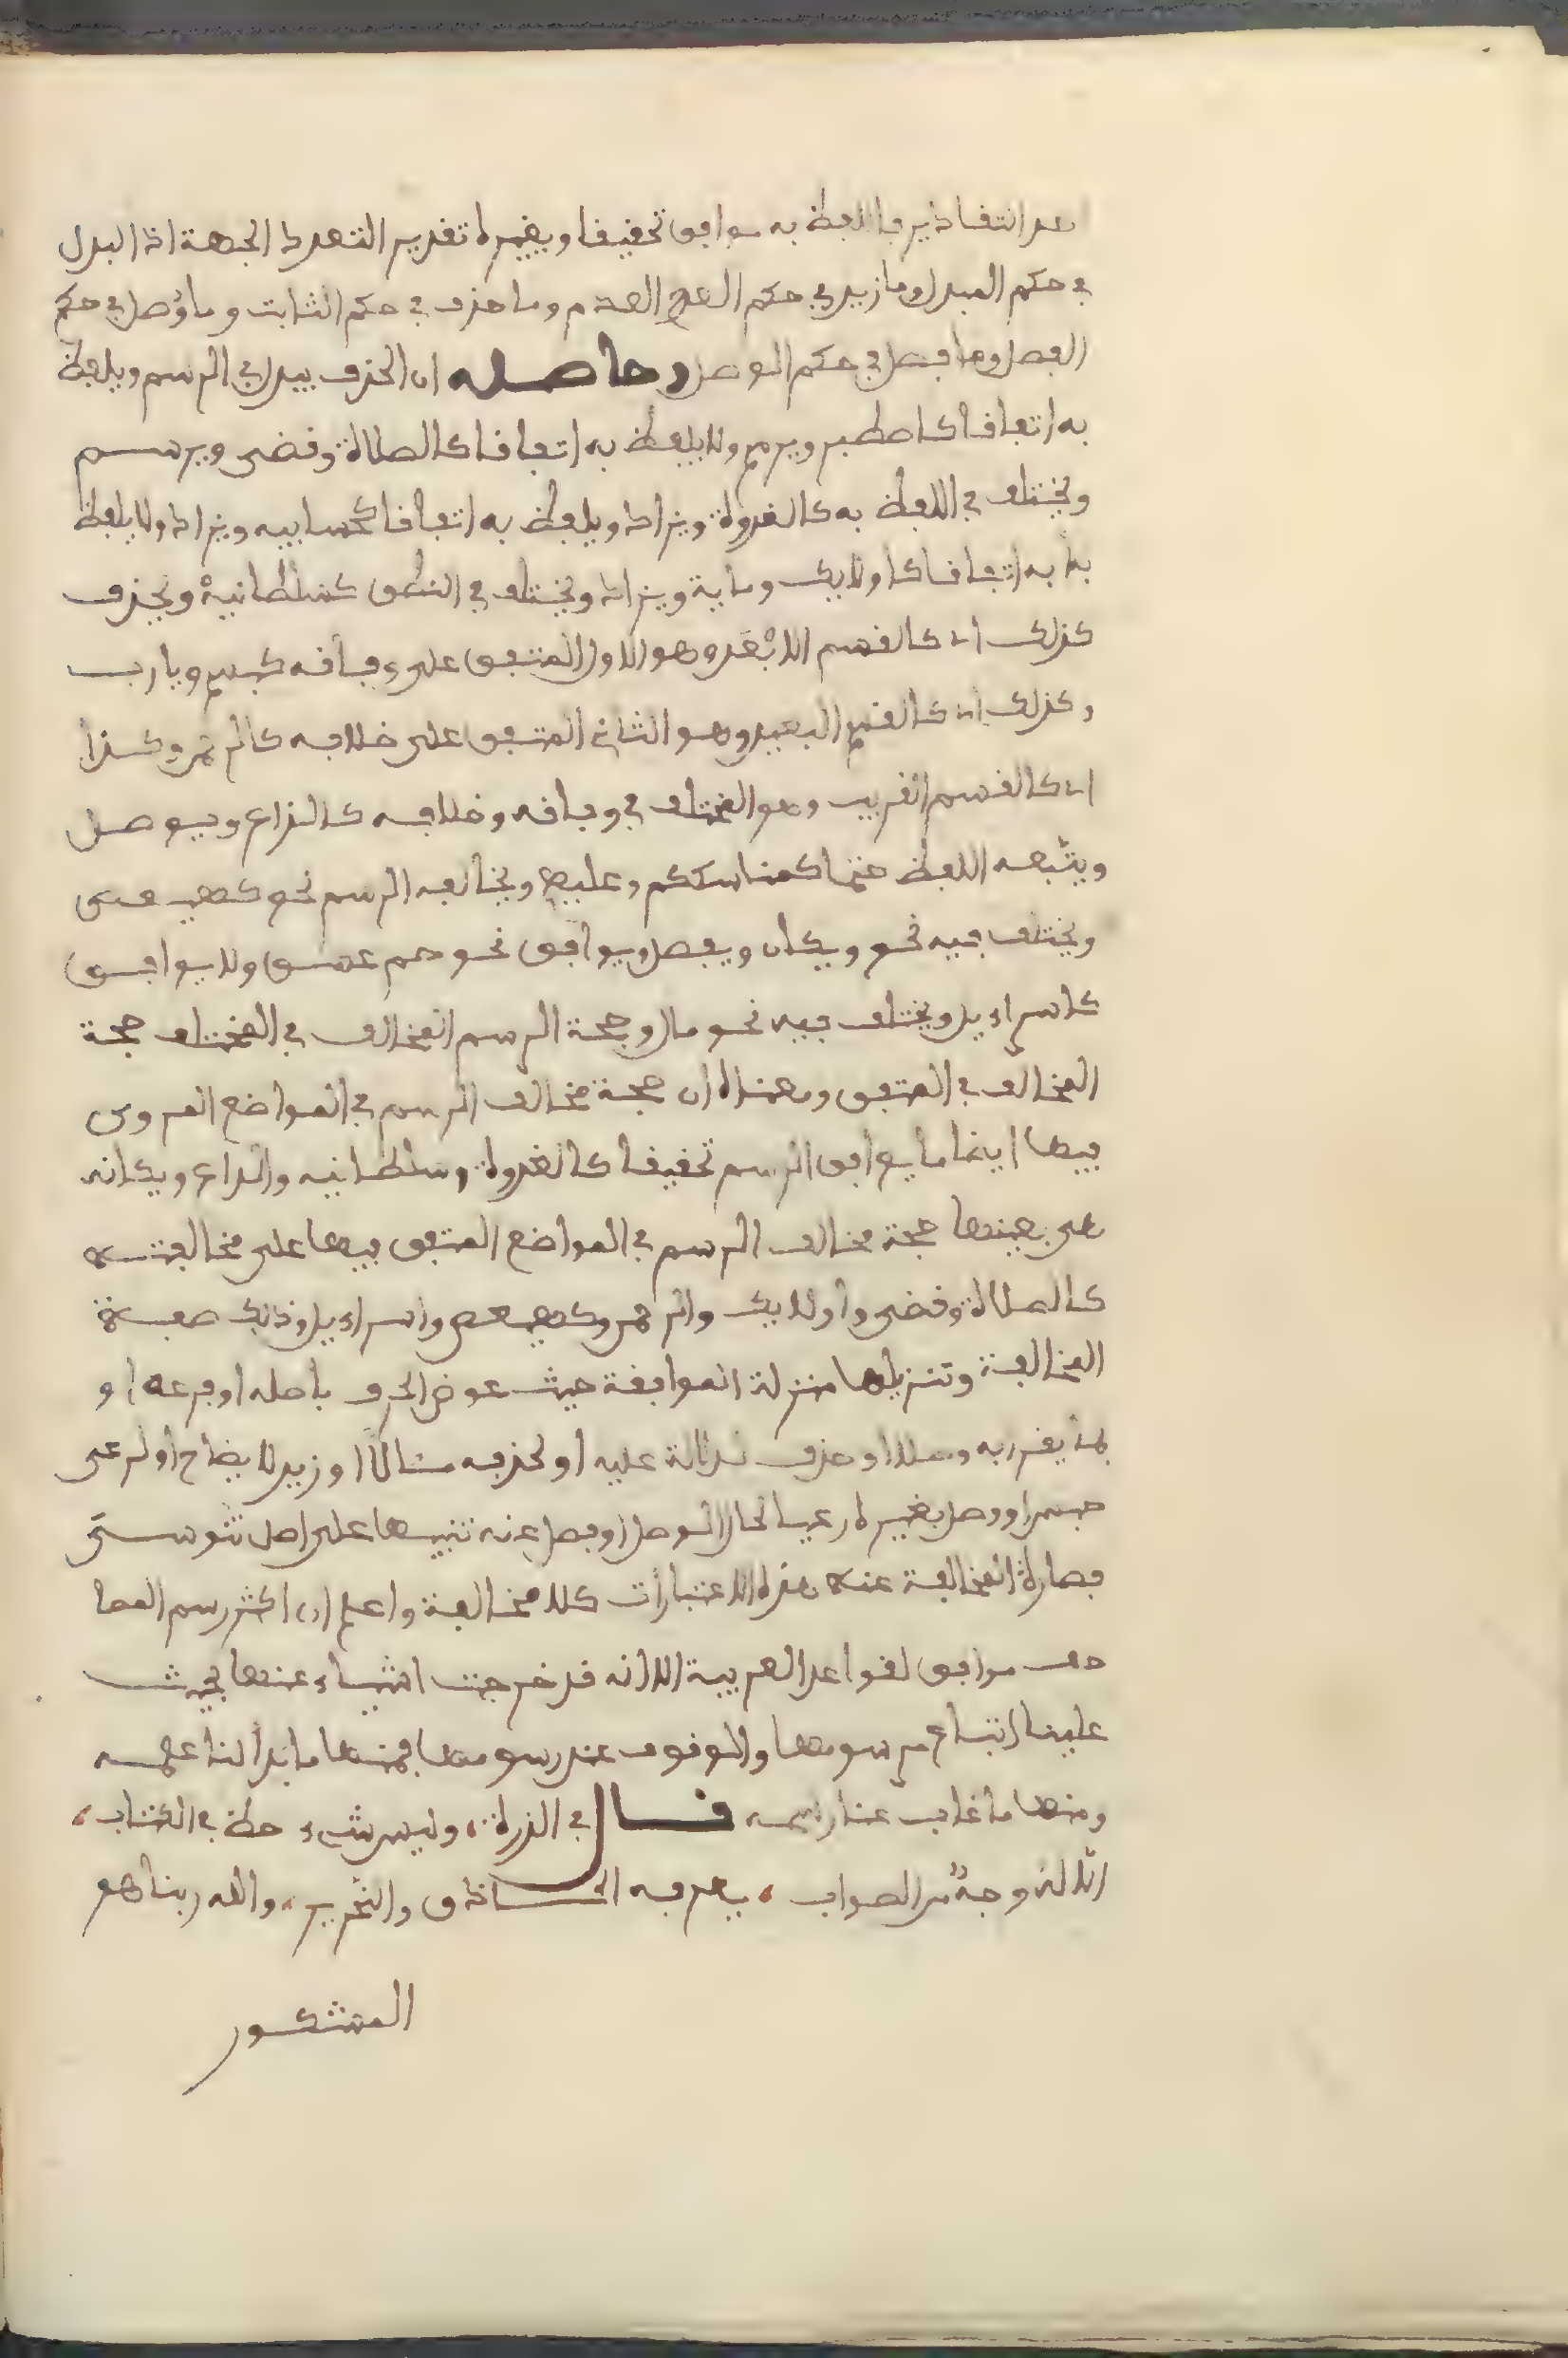 عد التقادير فاللفظ به موافق تحقيقا وبغيره تقدير التعدد الجهة اذ البدل
في حكم المبدل وما زيد في حكم العدم وما حذف في حكم الثابت وما وُصل في حكم
الفصل وما فصل في حكم الوصل وحاصله ان الحرف يبدل في الرسم ويلفظ
به اتفاقا كاصطبر ويرسم ولا يلفظ به اتفاقا كالصلاة وقضى ويرسم
ويختلف في اللفظ به كالغدوة ويزاد ويلفظ به اتفاقا كحسابيه ويزاد ولا يلفظ
به اتفاقا كاولايك وماية ويزاد ويختلف في النطق كسلطانيه ويحذف
كذلك اي كالقسم الابعد وهو الاول المتفق على وفاقه كبسم ويارب
وكذلك اي كالقسم البعيد وهو الثاني المتفق على خلافه كالرحمن وكذا
اي كالقسم القريب وهو المختلف في وفاقه وخلافه كالداع ويوصل
ويتبعه اللفظ حتما كمناسككم وعليهم ويخالفه الرسم نحو كهيعص
ويختلف فيه نحو ويكان ويفصل ويوافق نحو حم عسق ولا يوافق
كاسراءيل ويختلف فيه نحو مال وجهة الرسم المخالف في المختلف جهة
المخالف في المتفق ومعناه ان جهة مخالف الرسم في المواضع المروي
فيها ايضا ما يوافق الرسم تحقيقا كالغدوة وسلطانيه والداع ويكانه
هي بعينها جهة مخالف الرسم في المواضع المتفق فيها على مخالفته
كالصلاة وقضى وأولايك والرحمن وكهيعص واسراءيل وذلك صفة
المخالفة وتنزيلها منزلة الموافقة حيث عوض الحرف باصله او فرعه او
بما يقرر به وصلا او حذف لدلالة عليه او لحذفه مثالا او زيد لايضاح أو لرعي
حبس او وصل بغيره رعيا لحال الوصل او فصل عنه تنبيها على اصل تنوسيَ
فصارة المخالفة عند هذه الاعتبارات كلا مخالفة واعلم ان اكثر رسم المصا
حف موافق لقواعد العربية الا انه قد خرجت اشياء عنها يجب
علينا اتباع مرسومها والوقوف عند رسومها فمنها ما بدأ لنا علمه
ومنها ما غاب عنا رسمه قال في الدرة، وليس شيء خط في الكتاب،
الّا له وجهٌ من الصواب، يعرفه الحاذق والنحرير، والله ربنا هو
المشكور